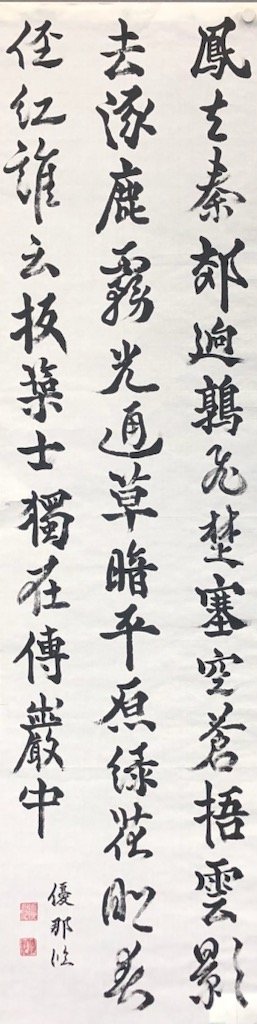 鳳去秦郊逈鶉飛楚塞空蒼梧雲影
去涿鹿霧光通草暗平原緑花明春
径紅誰云板築士獨在傅巖中
優那臨